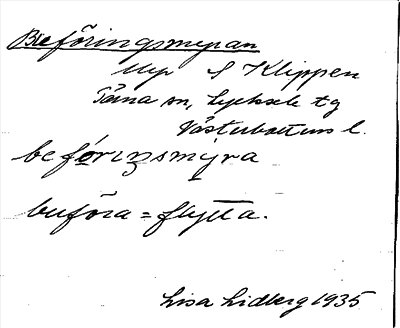 Beföringsmyran
Myr S Klippen
Tärna sn, Lycksele tg
Västerbottens l.
beføriŋsmỵra
buföra = flytta.
Lisa Lidberg 1935